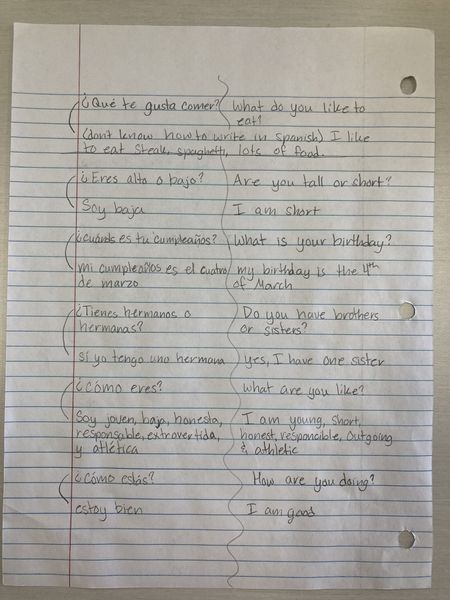 ¿Qué te gusta comer? What do you like to
eat?
(don't know how to write in Spanish) I like
to eat Steak, spaghetti, lots of food.
¿Eres alto o bajo? Are you tall or short?
Soy baja I am short
¿cuándo es tu cumpleaños? What is your birthday?
mi cumpleaños es el cuatro my birthday is the 4th
de marzo of March
¿Tienes hermanos o Do you have brothers
hermanas? or sisters?
sí yo tengo uno hermana yes, I have one sister
¿Cómo eres? What are you like?
Soy joven, baja, honesta, I am young, short,
responsable, extrovertida, honest, responcible, outgoing
y atlética & athletic
¿Cómo estás? How are you doing?
estoy bien I am good